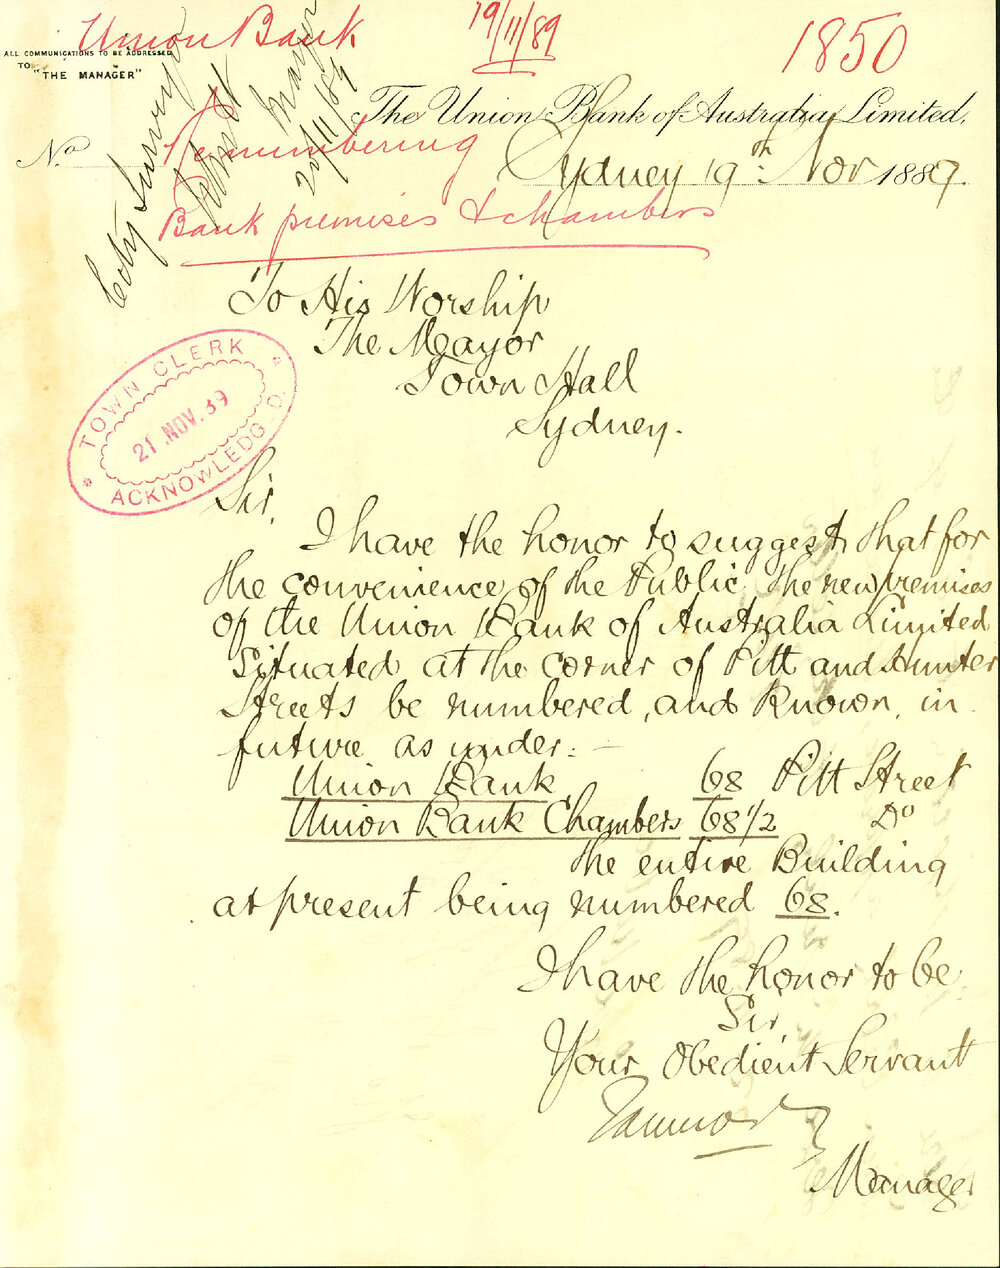 Union Bank
19/11/89
1850
ALL COMMUNICATIONS TO BE ADDRESSED
TO
"THE MANAGER"
City Surveyor
Report
Mayor
20/11/89
The Union Bank of Australia Limited,
No
Renumbering
Sydney 19th Nov 1889.
Bank premises & chambers
To His Worship
The Mayor
Town Hall
Sydney.
TOWN CLERK
21 NOV. 89
ACKNOWLEDG'D.
Sir,
I have the honor to suggest that for
the convenience of the Public, the new premises
of the Union Bank of Australia Limited
Situated at the corner of Pitt and Hunter
Streets be numbered, and Known, in
future as under: -
Union Bank 68 Pitt Street
Union Bank Chambers 68 1/2 Do
The entire Building
at present being numbered 68.
I have the honor to be
Sir,
Your Obedient Servant
Manager